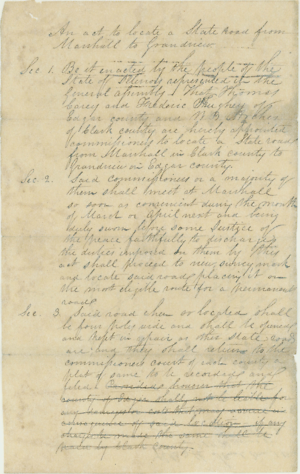 An act to locate a State road from
Marshall to Grandview.
Sec 1. Be it enacted by the people of the
State of Illinois represented in the
General assembly, That Thomas
Carey and Frederic
Edgar county and
of Clark county are hereby appointed
commissioners to locate a State road
from Marshall in Clark county to
Grandview in Edgar county.
Sec. 2. Said commissioners or a majority of
them shall meet at Marshall
so soon as convenient during the month
of March or April next and being
duly sworn before some Justice of
the peace faithfully to discharge
the duties imposed on them by this
act shall proceed to view survey mark
and locate said road placing it on
the most eligible route for a permanent
road.
Sec. 3. Said road when so located shall
be four poles wide and shall be opened
and kept in repair as other State roads
are and they shall return to the
commissioners court of each county a
plat of same to be recorded and
filed. Provided however that the
county of Edgar shall not be
any
of
the same to be
by Clark County.